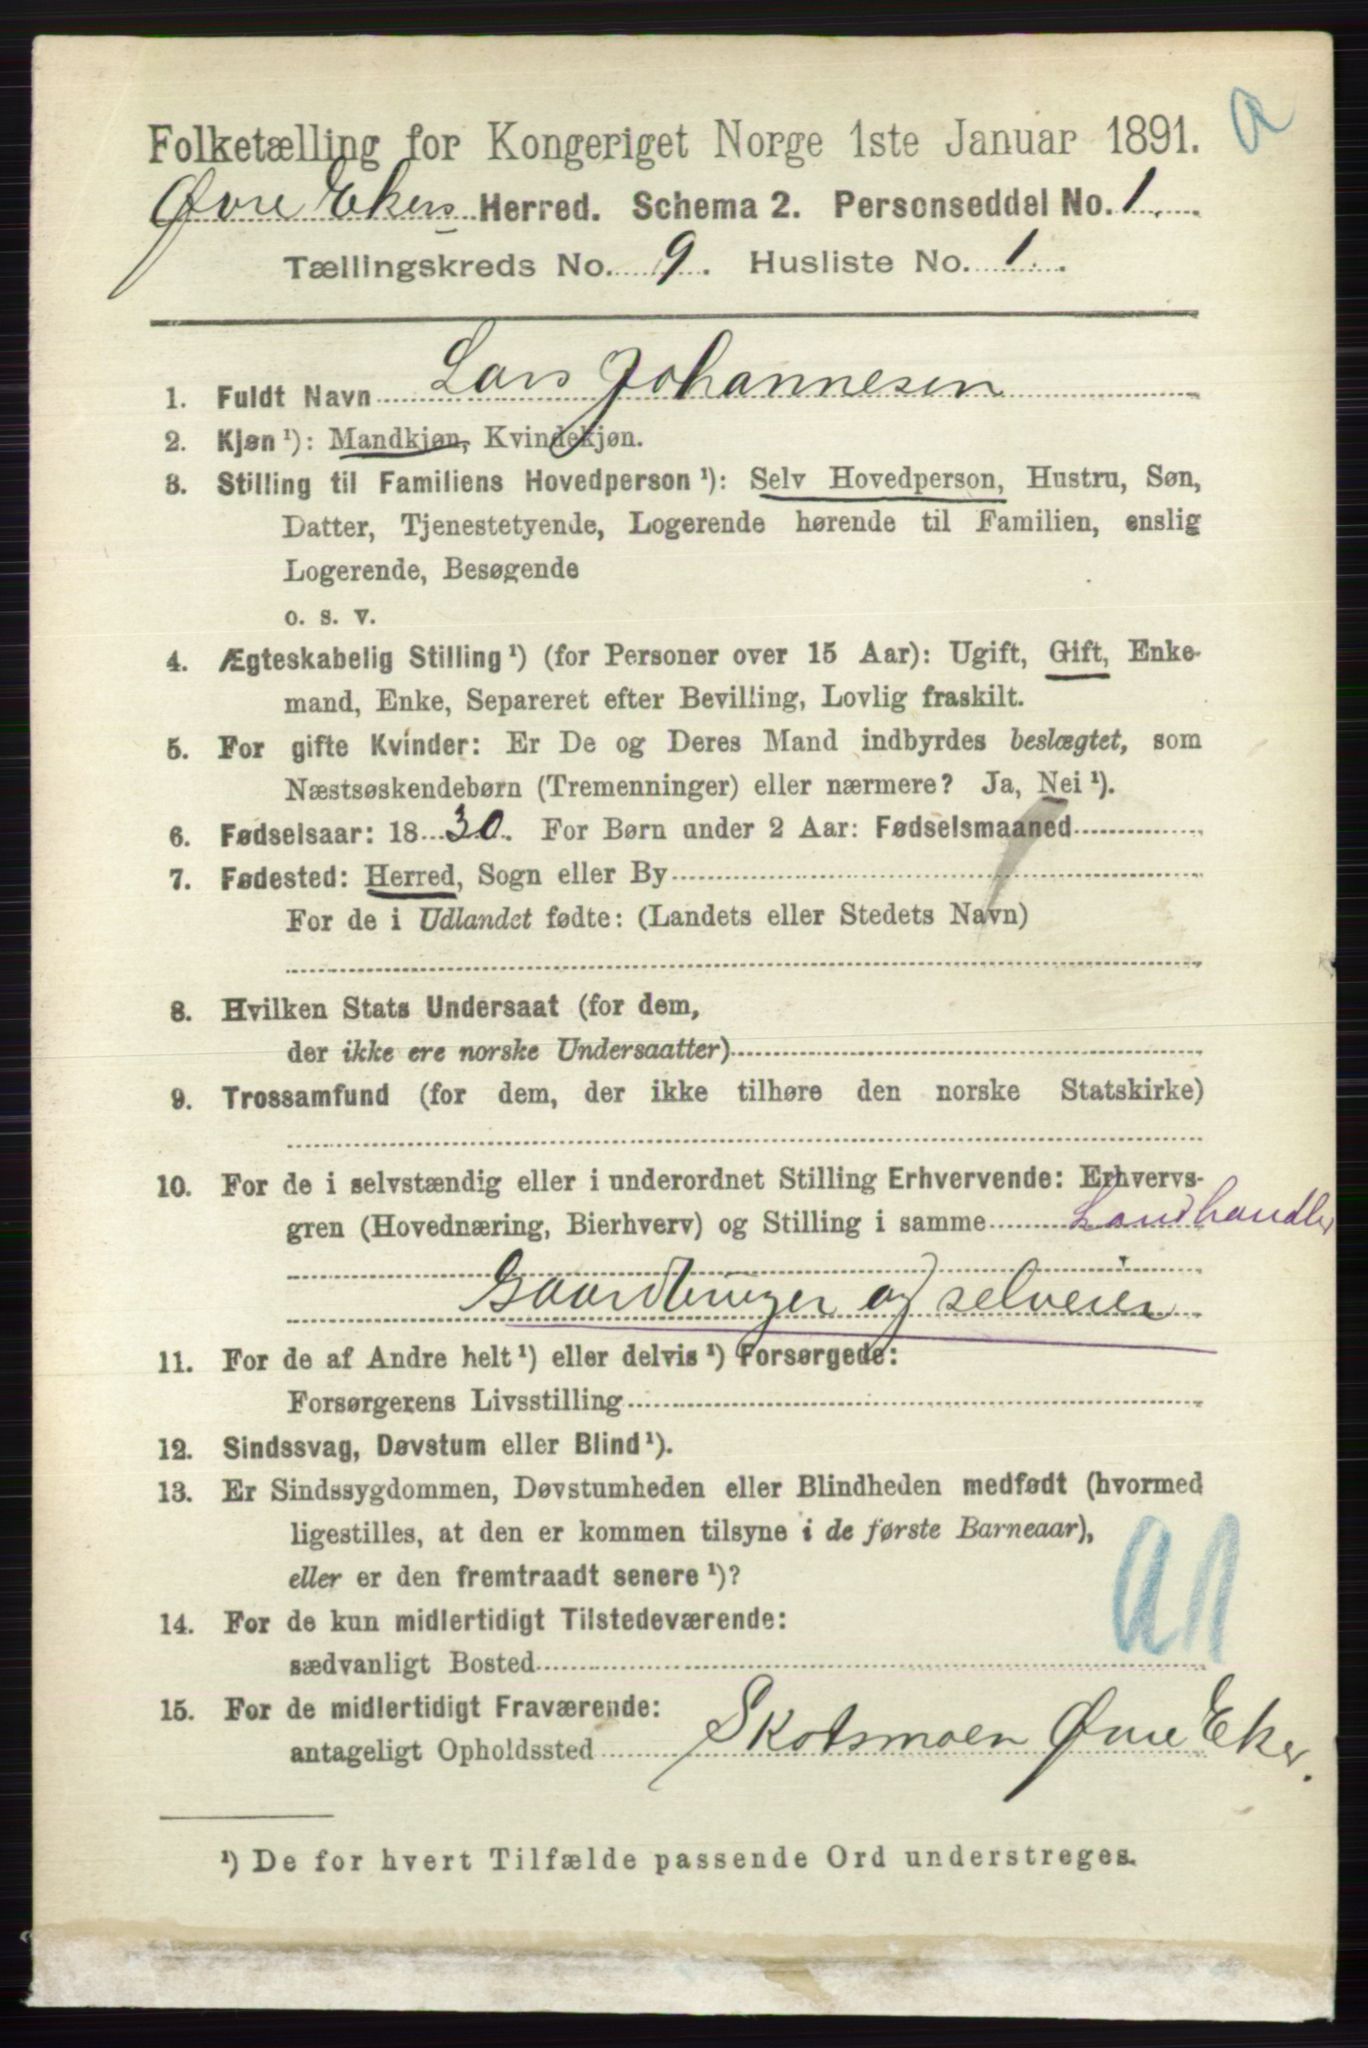 Folketælling for Kongeriget Norge 1ste Januar 1891.
a
Øvre Ekers Herred. Schema 2. Personseddel No. 1.
Tællingskreds No. 9. Husliste No. 1.
1. Fuldt Navn Lars Johannesen
2. Kjøn ¹): Mandkjøn, Kvindekjøn.
3. Stilling til Familiens Hovedperson ¹): Selv Hovedperson, Hustru, Søn,
Datter, Tjenestetyende, Logerende hørende til Familien, enslig
Logerende, Besøgende
o. s. v.
4. Ægteskabelig Stilling ¹) (for Personer over 15 Aar): Ugift, Gift, Enke-
mand, Enke, Separeret efter Bevilling, Lovlig fraskilt.
5. For gifte Kvinder: Er De og Deres Mand indbyrdes beslægtet, som
Næstsøskendebørn (Tremenninger) eller nærmere? Ja, Nei ¹).
6. Fødselsaar: 1830. For Børn under 2 Aar: Fødselsmaaned
7. Fødested: Herred, Sogn eller By
For de i Udlandet fødte: (Landets eller Stedets Navn)
8. Hvilken Stats Undersaat (for dem,
der ikke ere norske Undersaatter)
9. Trossamfund (for dem, der ikke tilhøre den norske Statskirke)
10. For de i selvstændig eller i underordnet Stilling Erhvervende: Erhvervs-
gren (Hovednæring, Bierhverv) og Stilling i samme Landhandler
Gaardbruger og selveier
11. For de af Andre helt ¹) eller delvis ¹) Forsørgede:
Forsørgerens Livsstilling
12. Sindssvag, Døvstum eller Blind ¹).
13. Er Sindssygdommen, Døvstumheden eller Blindheden medfødt (hvormed
ligestilles, at den er kommen tilsyne i de første Barneaar),
eller er den fremtraadt senere ¹)?
14. For de kun midlertidigt Tilstedeværende:
sædvanligt Bosted
15. For de midlertidigt Fraværende:
antageligt Opholdssted Skotsmoen Øvre Eker.
¹) De for hvert Tilfælde passende Ord understreges.